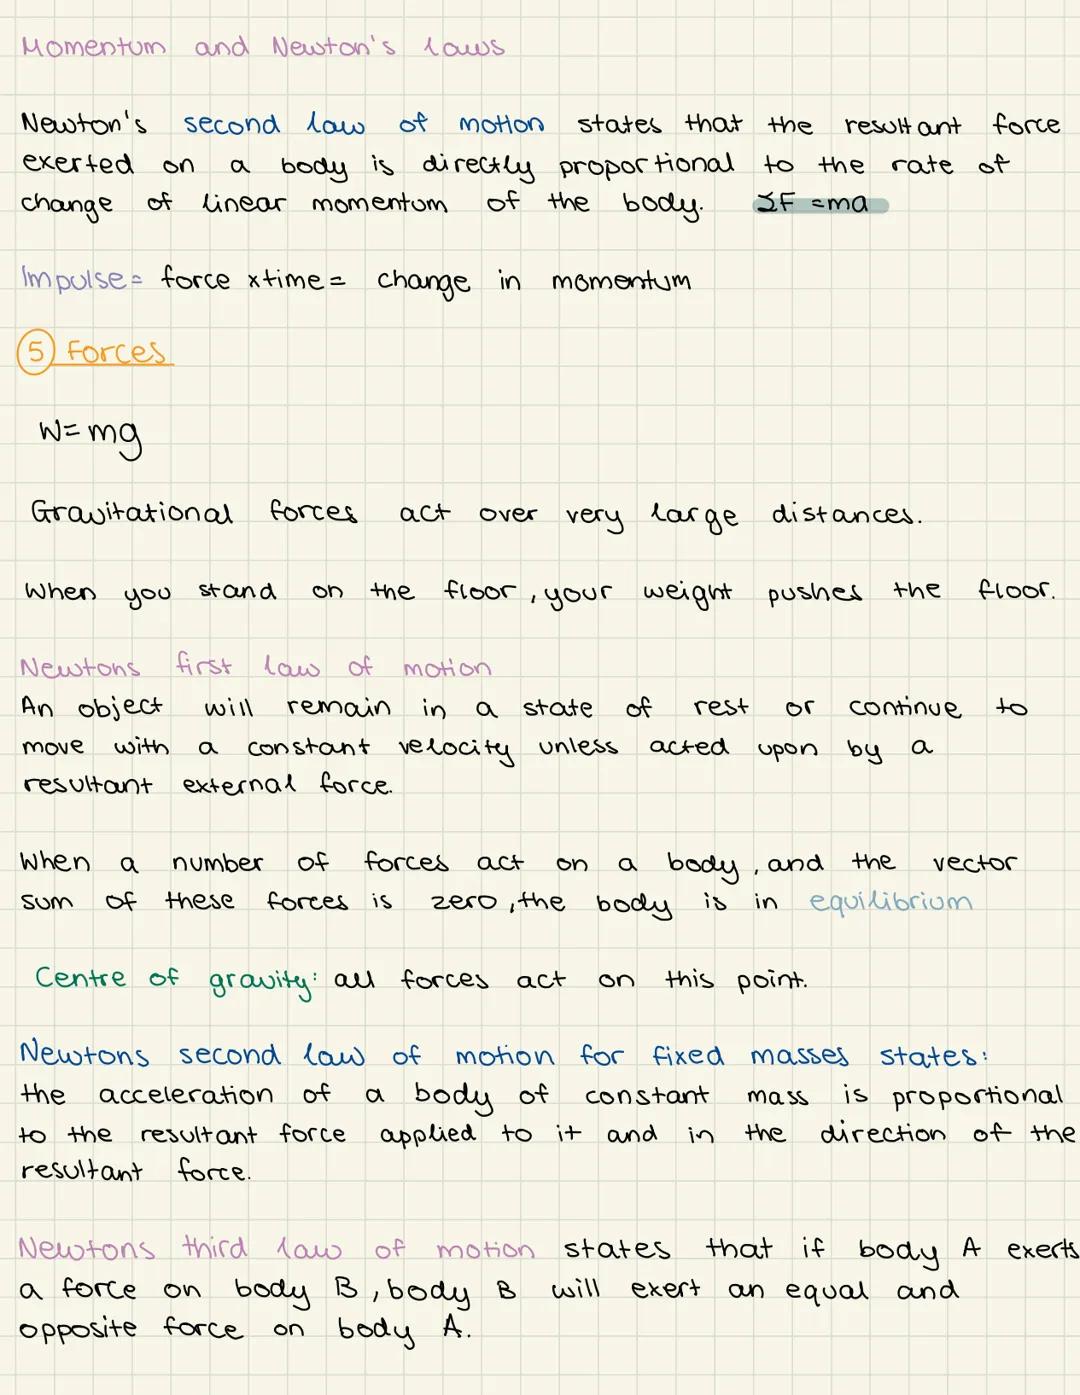 Momentum and Newton's laws
Newton's second law of motion states that the resultant force
exerted on a body is directly proportional to the rate of
change of linear momentum of the body. ΣF =ma
Impulse= force xtime= change in momentum
5 Forces
W=mg
Gravitational forces act over very large distances.
When you stand on the floor, your weight pushes the floor.
Newtons first law of motion
An object will remain in a state of rest or continue to
move with a constant velocity unless acted upon by a
resultant external force.
When a number of forces act on a body, and the vector
sum of these forces is zero, the body is in equilibrium
Centre of gravity: all forces act on this point.
Newtons second law of motion for fixed masses states:
the acceleration of a body of constant mass is proportional
to the resultant force applied to it and in the direction of the
resultant force.
Newtons third law of motion states that if body A exerts
a force on body B, body B will exert an equal and
opposite force on body A.